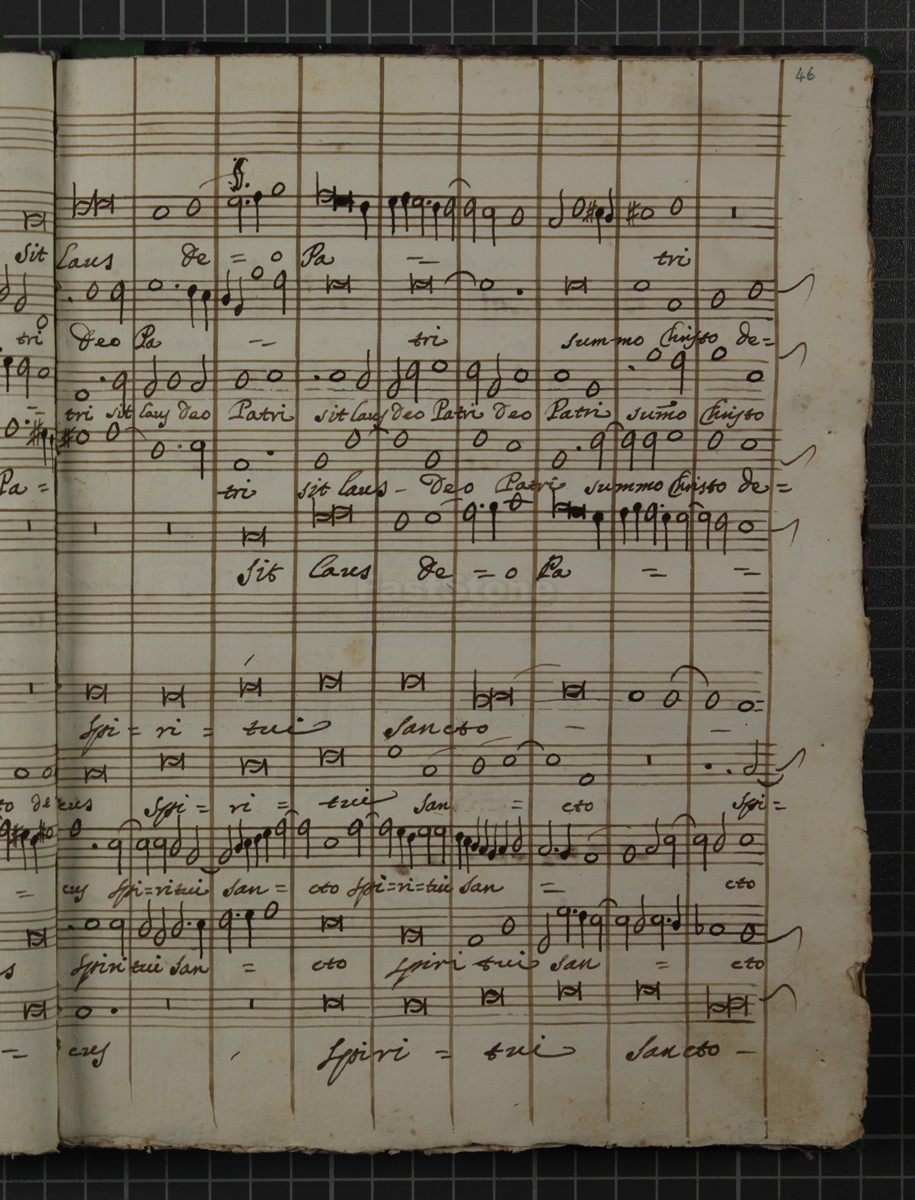 46
Sit Laus de = o Pa = tri
tri Deo Pa = tri summo Christo de=
= tri sit Laus Deo Patri sit Laus Deo Patri Deo Patri sum̄o Christo
Pa = tri sit Laus - Deo Patri summo Christo de =
Sit Laus De = o Pa = =
Spi = ri = tui Sancto - -
to de cus Spi = ri = tui San = cto Spi=
= cus Spi=ritui San = cto Spi=ri=tui San = cto
s Spiri tui San = cto Spiri tui San = cto
= cus Spiri = tui Sancto -